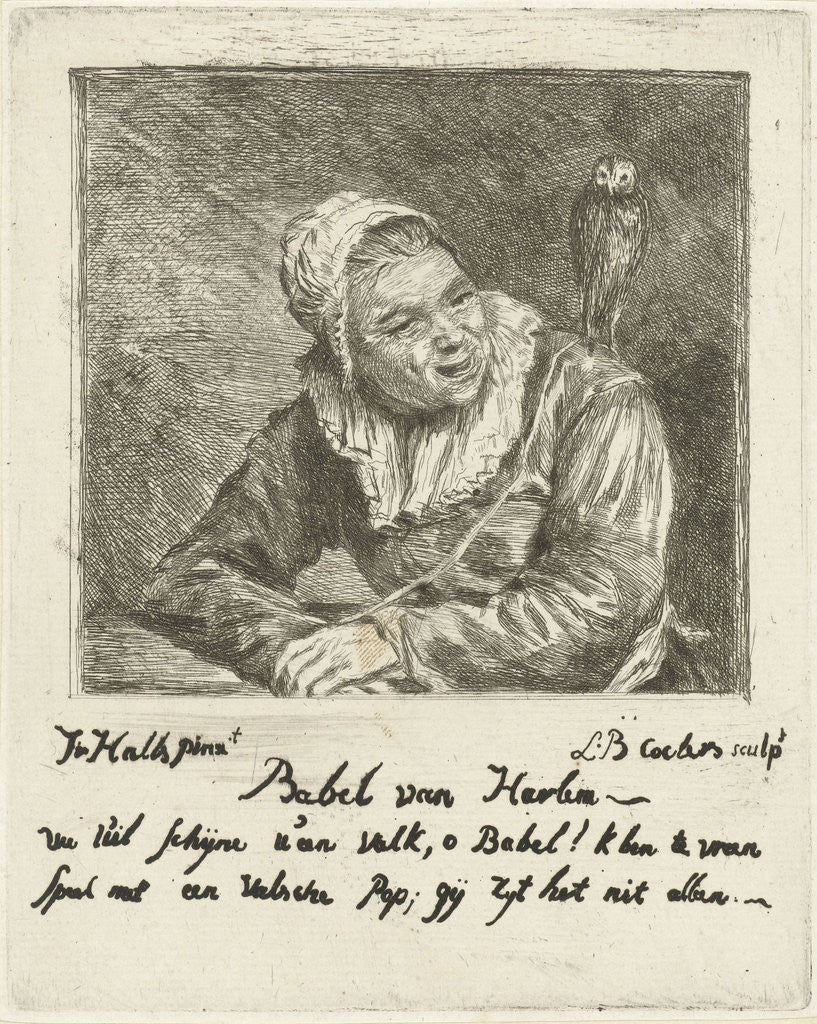 Fr Halls pinx.t L: B coclers sculpt
Babel van Harlem
uw uil schijne u'een valk, o Babel! k ben te vreen
speel met een valsche Pop; gij zijt het nit alleen.